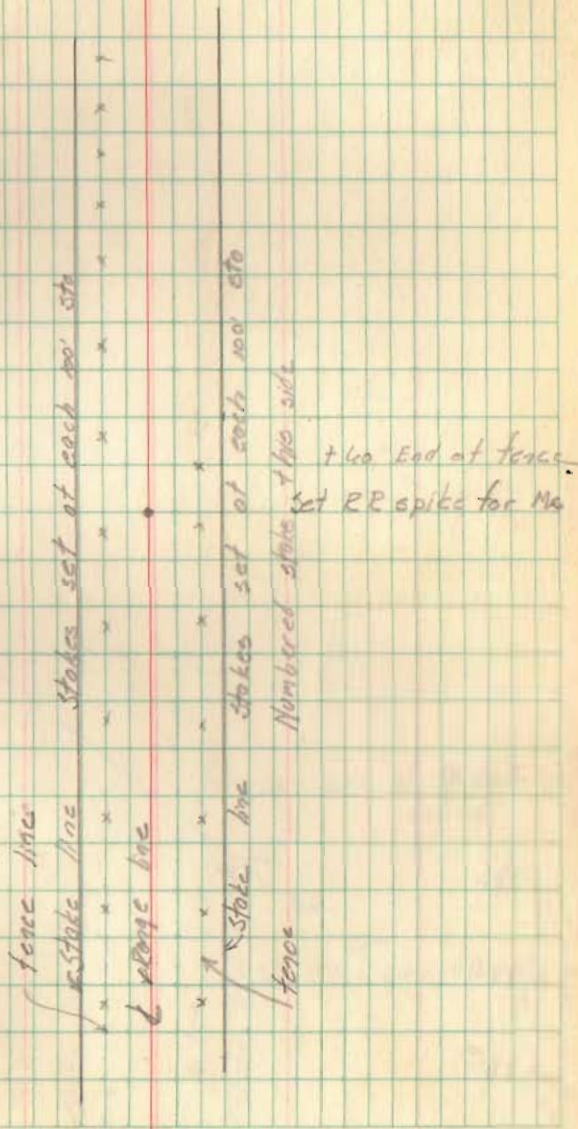 fence line
Stake line Stakes set at each 100' sta
range line
Stake line Stakes set at each 100' sta
fence Numbered stake this side
+60 End of fence
Set RR spike for